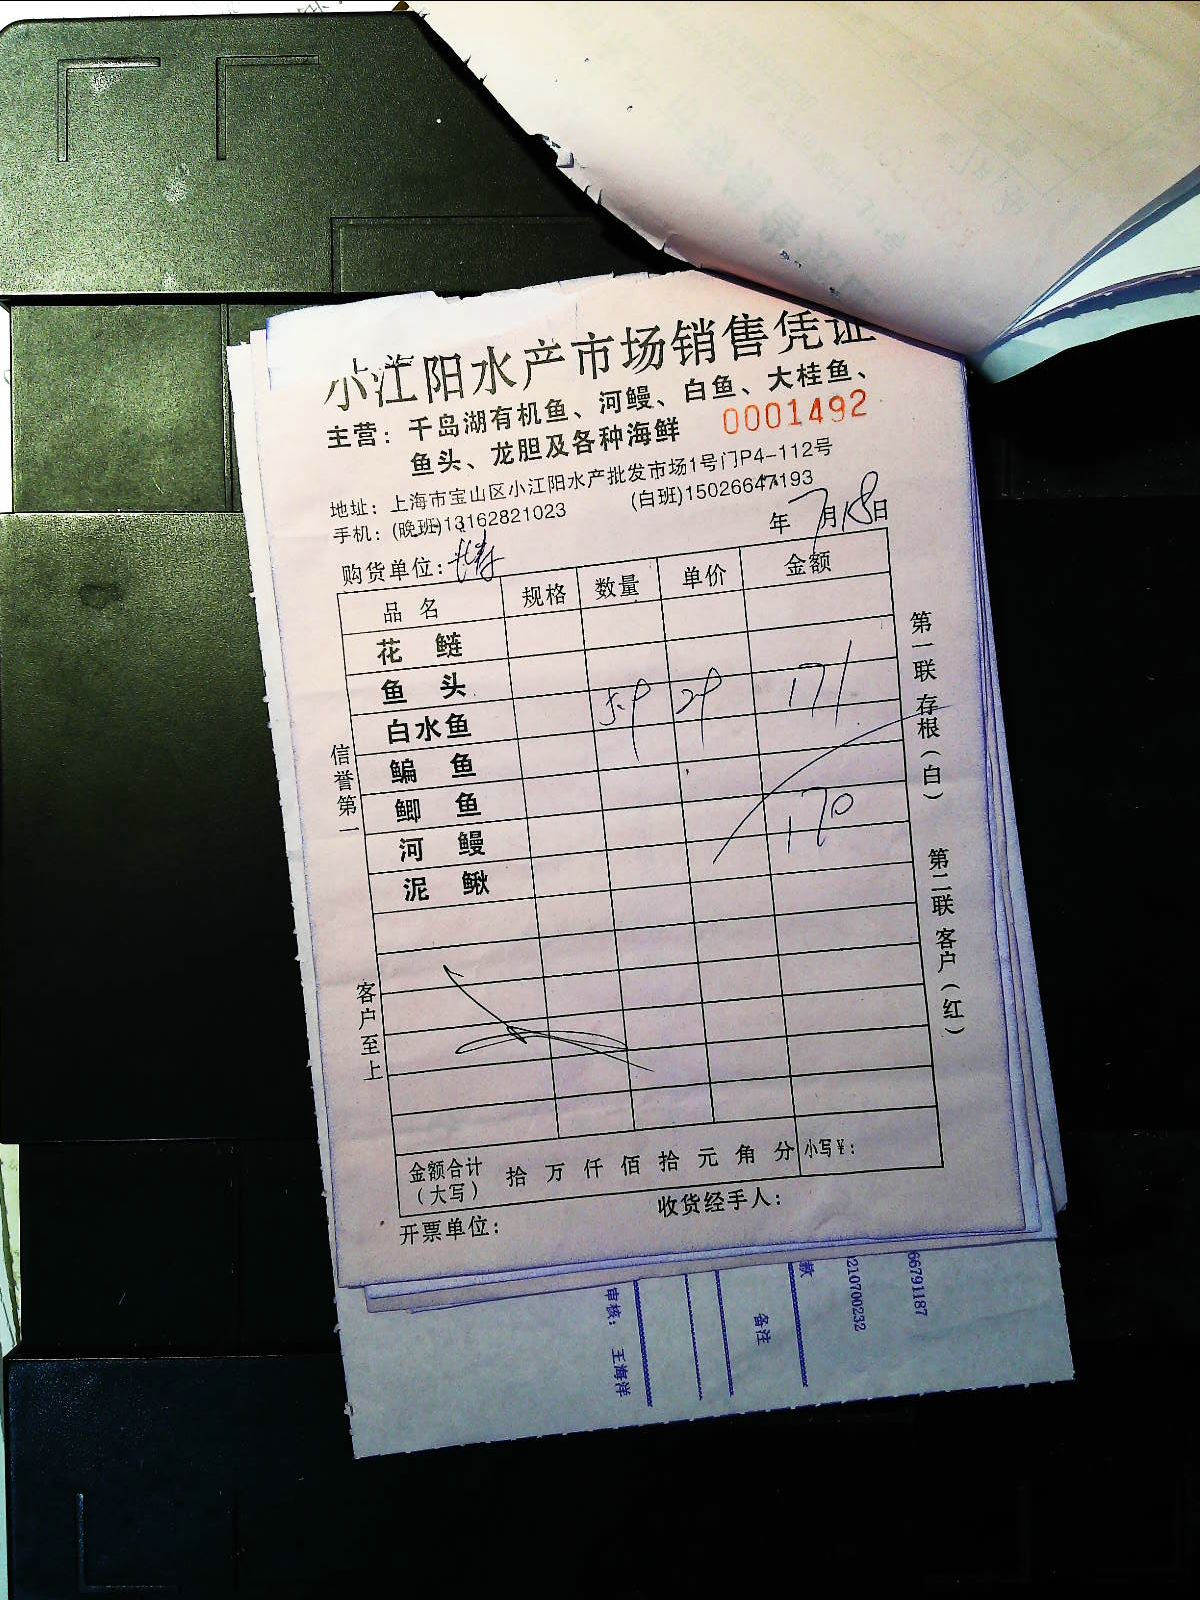 小江阳水产市场销售凭证
主营：千岛湖有机鱼、河鳗、白鱼、大桂鱼、
鱼头、龙胆及各种海鲜
0001492
地址：上海市宝山区小江阳水产批发市场1号门P4-112号
手机：(晚班)13162821023 (白班)15026647193
年7月18日
购货单位：
品名 规格 数量 单价 金额
花鲢
鱼头
白水鱼 5.9 29 171
鳊鱼
鲫鱼 170
河鳗
泥鳅
信誉第一
客户至上
第一联 存根（白）
第二联 客户（红）
金额合计（大写） 拾 万 仟 佰 拾 元 角 分 小写¥：
开票单位： 收货经手人：
审核： 王海洋
备注
款
210700232
66791187